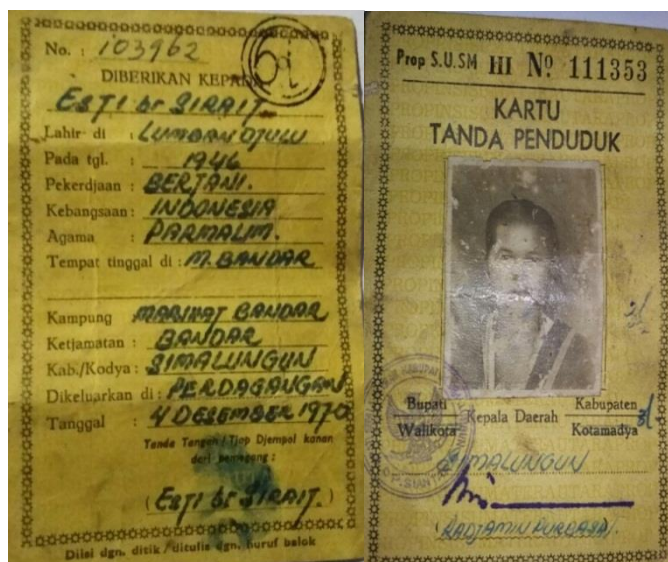 No. : 103962
DIBERIKAN KEPADA
ESTI br SIRAIT
Lahir di : LUMBAN DJULU
Pada tgl. : 1946
Pekerdjaan : BERTANI.
Kebangsaan : INDONESIA
Agama : PARMALIM.
Tempat tinggal di : M. BANDAR
Kampung MARIHAT BANDAR
Ketjamatan : BANDAR
Kab./Kodya : SIMALUNGUN
Dikeluarkan di : PERDAGANGAN
Tanggal : 4 DESEMBER 1970
Tanda Tangan / Tjap Djempol kanan
dari pemegang :
(ESTI br SIRAIT.)
Diisi dgn. ditik / ditulis dgn. huruf balok
Prop S.U.SM III No 111353
KARTU
TANDA PENDUDUK
Bupati Kepala Daerah Kabupaten
Walikota Kotamadya
SIMALUNGUN
(RADJAMIN PURBA SH).